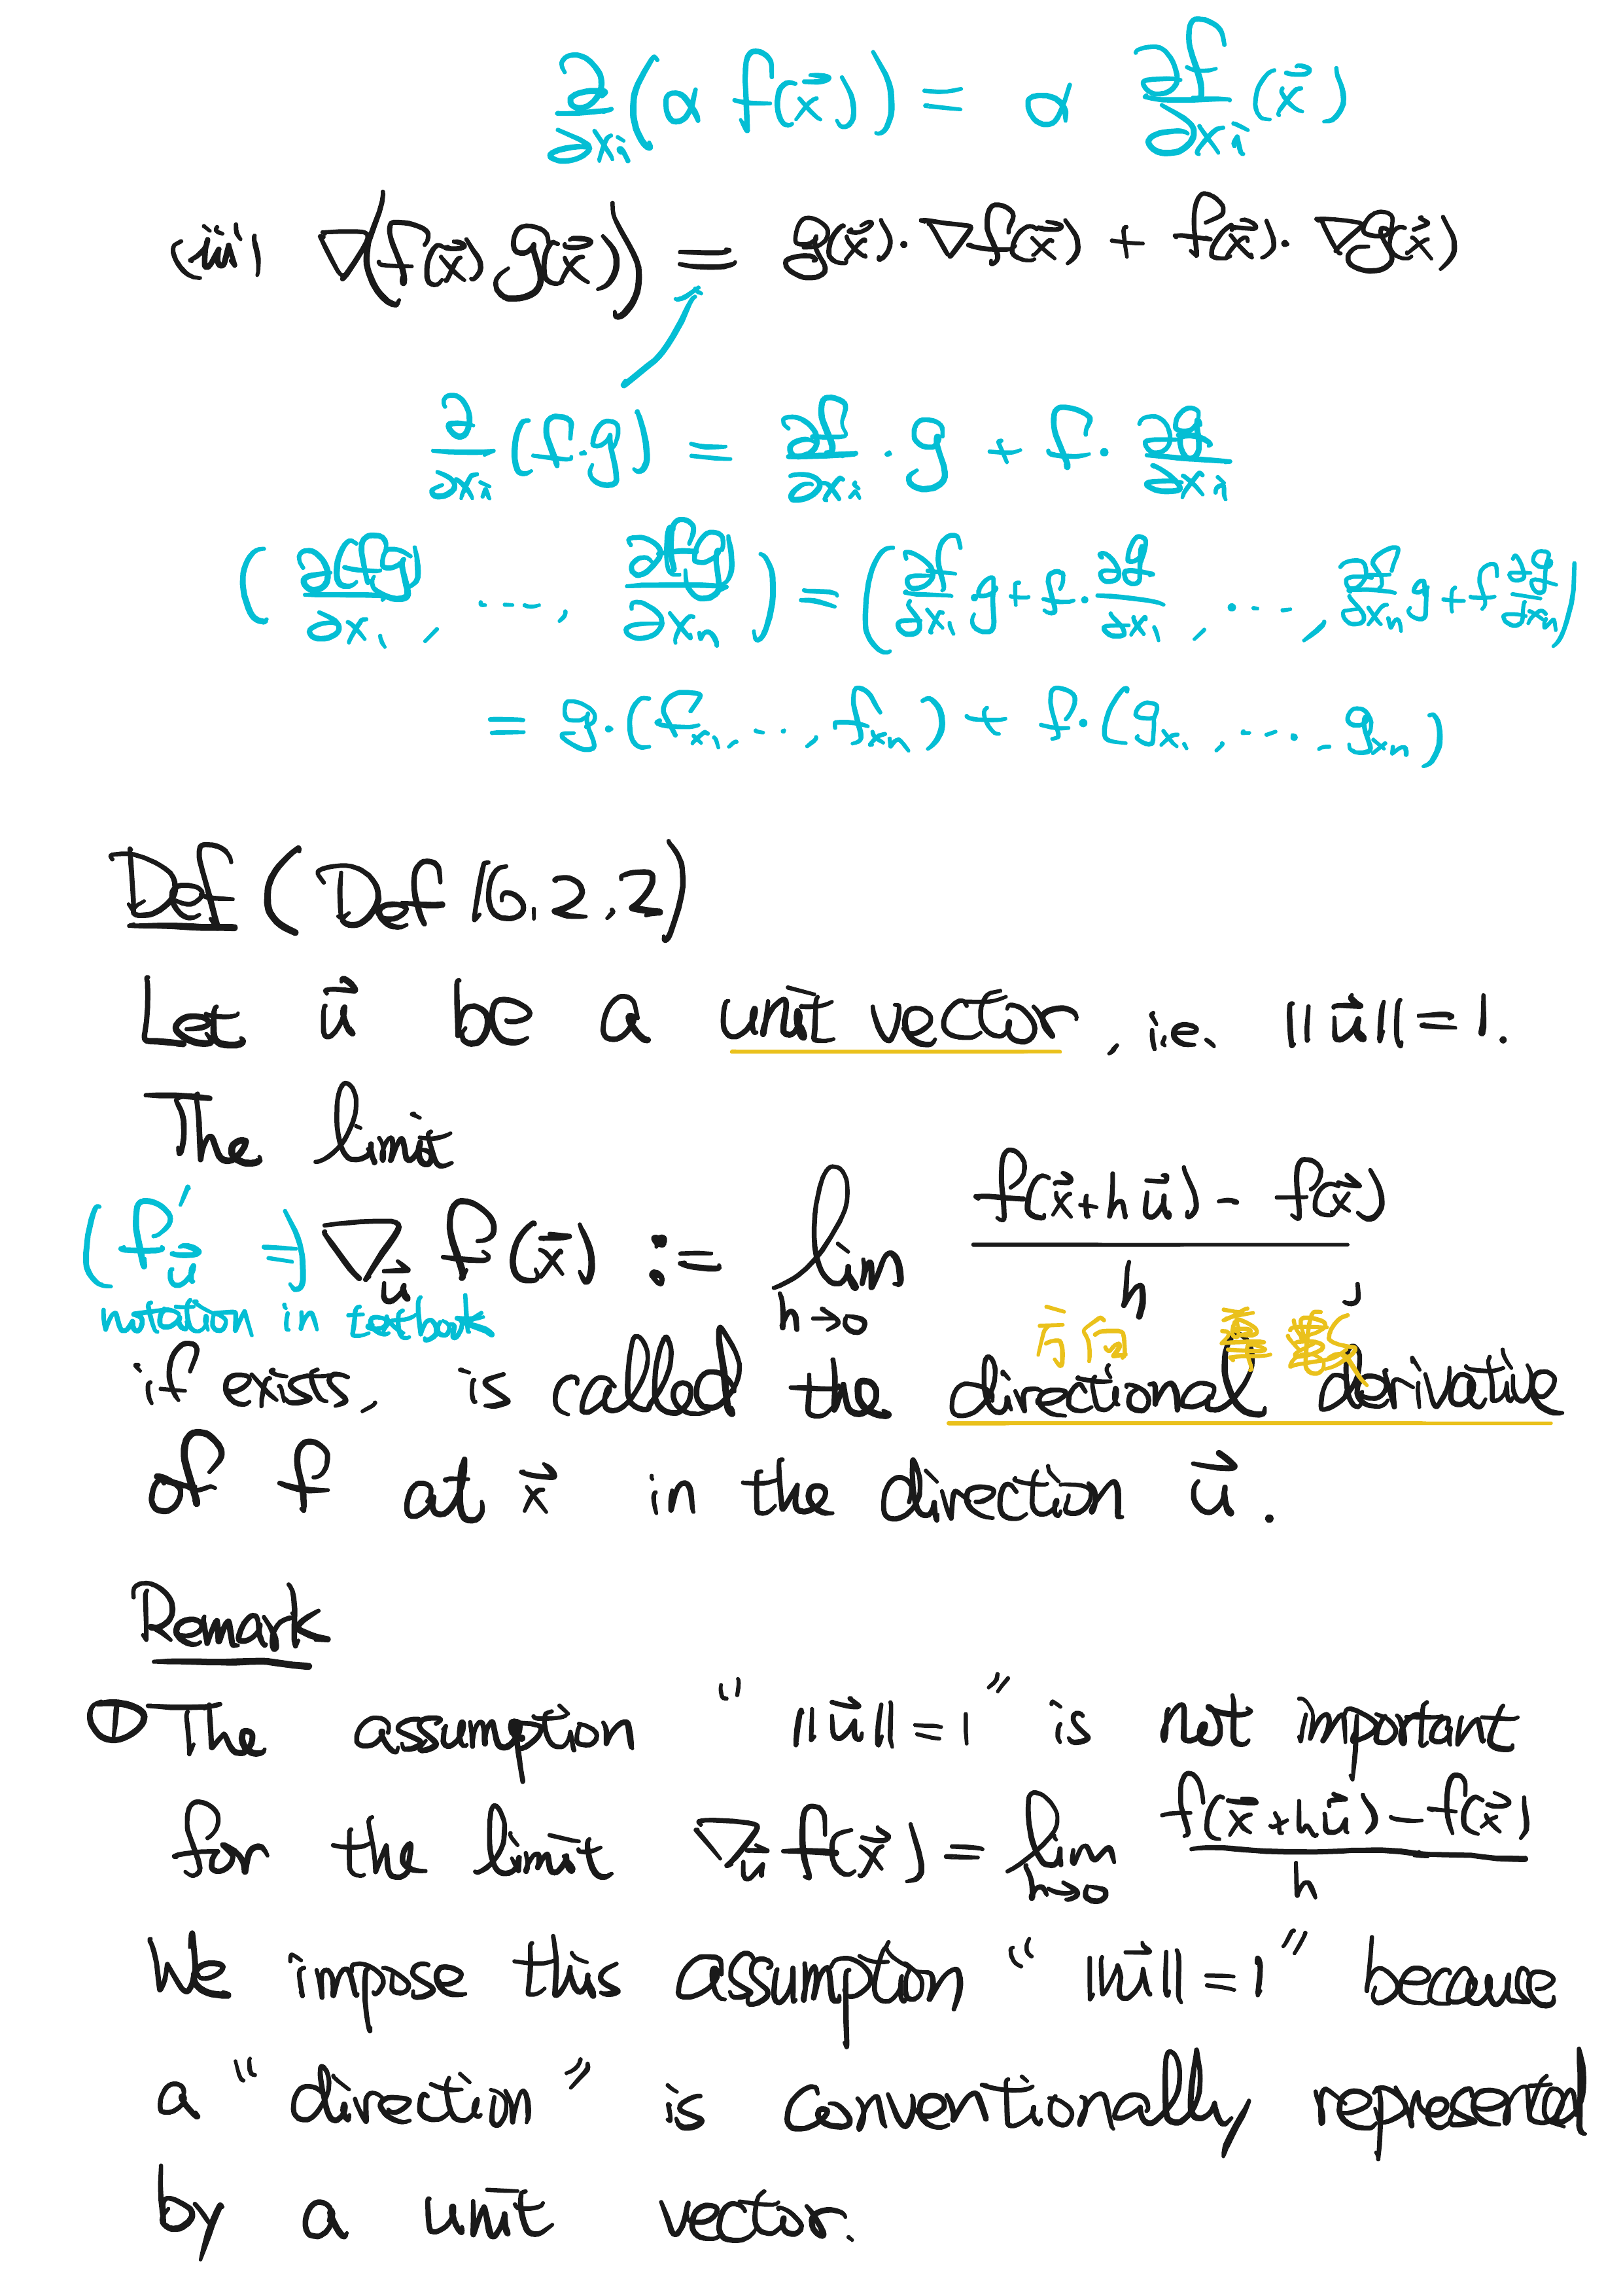 ∂/∂xᵢ (α f(x⃗)) = α ∂f/∂xᵢ (x⃗)
(iii) ∇(f(x⃗) g(x⃗)) = g(x⃗)·∇f(x⃗) + f(x⃗)·∇g(x⃗)
∂/∂xᵢ (f·g) = ∂f/∂xᵢ · g + f · ∂g/∂xᵢ
(∂(fg)/∂x₁, ..., ∂(fg)/∂xₙ) = (∂f/∂x₁ · g + f · ∂g/∂x₁, ..., ∂f/∂xₙ g + f ∂g/∂xₙ)
= g·(f_x₁, ..., f_xₙ) + f·(g_x₁, ..., g_xₙ)
Def (Def 16.2.2)
Let u⃗ be a unit vector, i.e. ‖u⃗‖ = 1.
The limit
(f'_u⃗ =) ∇_u⃗ f(x⃗) := lim_{h→0} (f(x⃗+hu⃗) - f(x⃗))/h,
notation in textbook
方向 導數
if exists, is called the directional derivative
of f at x⃗ in the direction u⃗.
Remark
① The assumption "‖u⃗‖ = 1" is not important
for the limit ∇_u⃗ f(x⃗) = lim_{h→0} (f(x⃗+hu⃗) - f(x⃗))/h
We impose this assumption "‖u⃗‖ = 1" because
a "direction" is conventionally represented
by a unit vector.